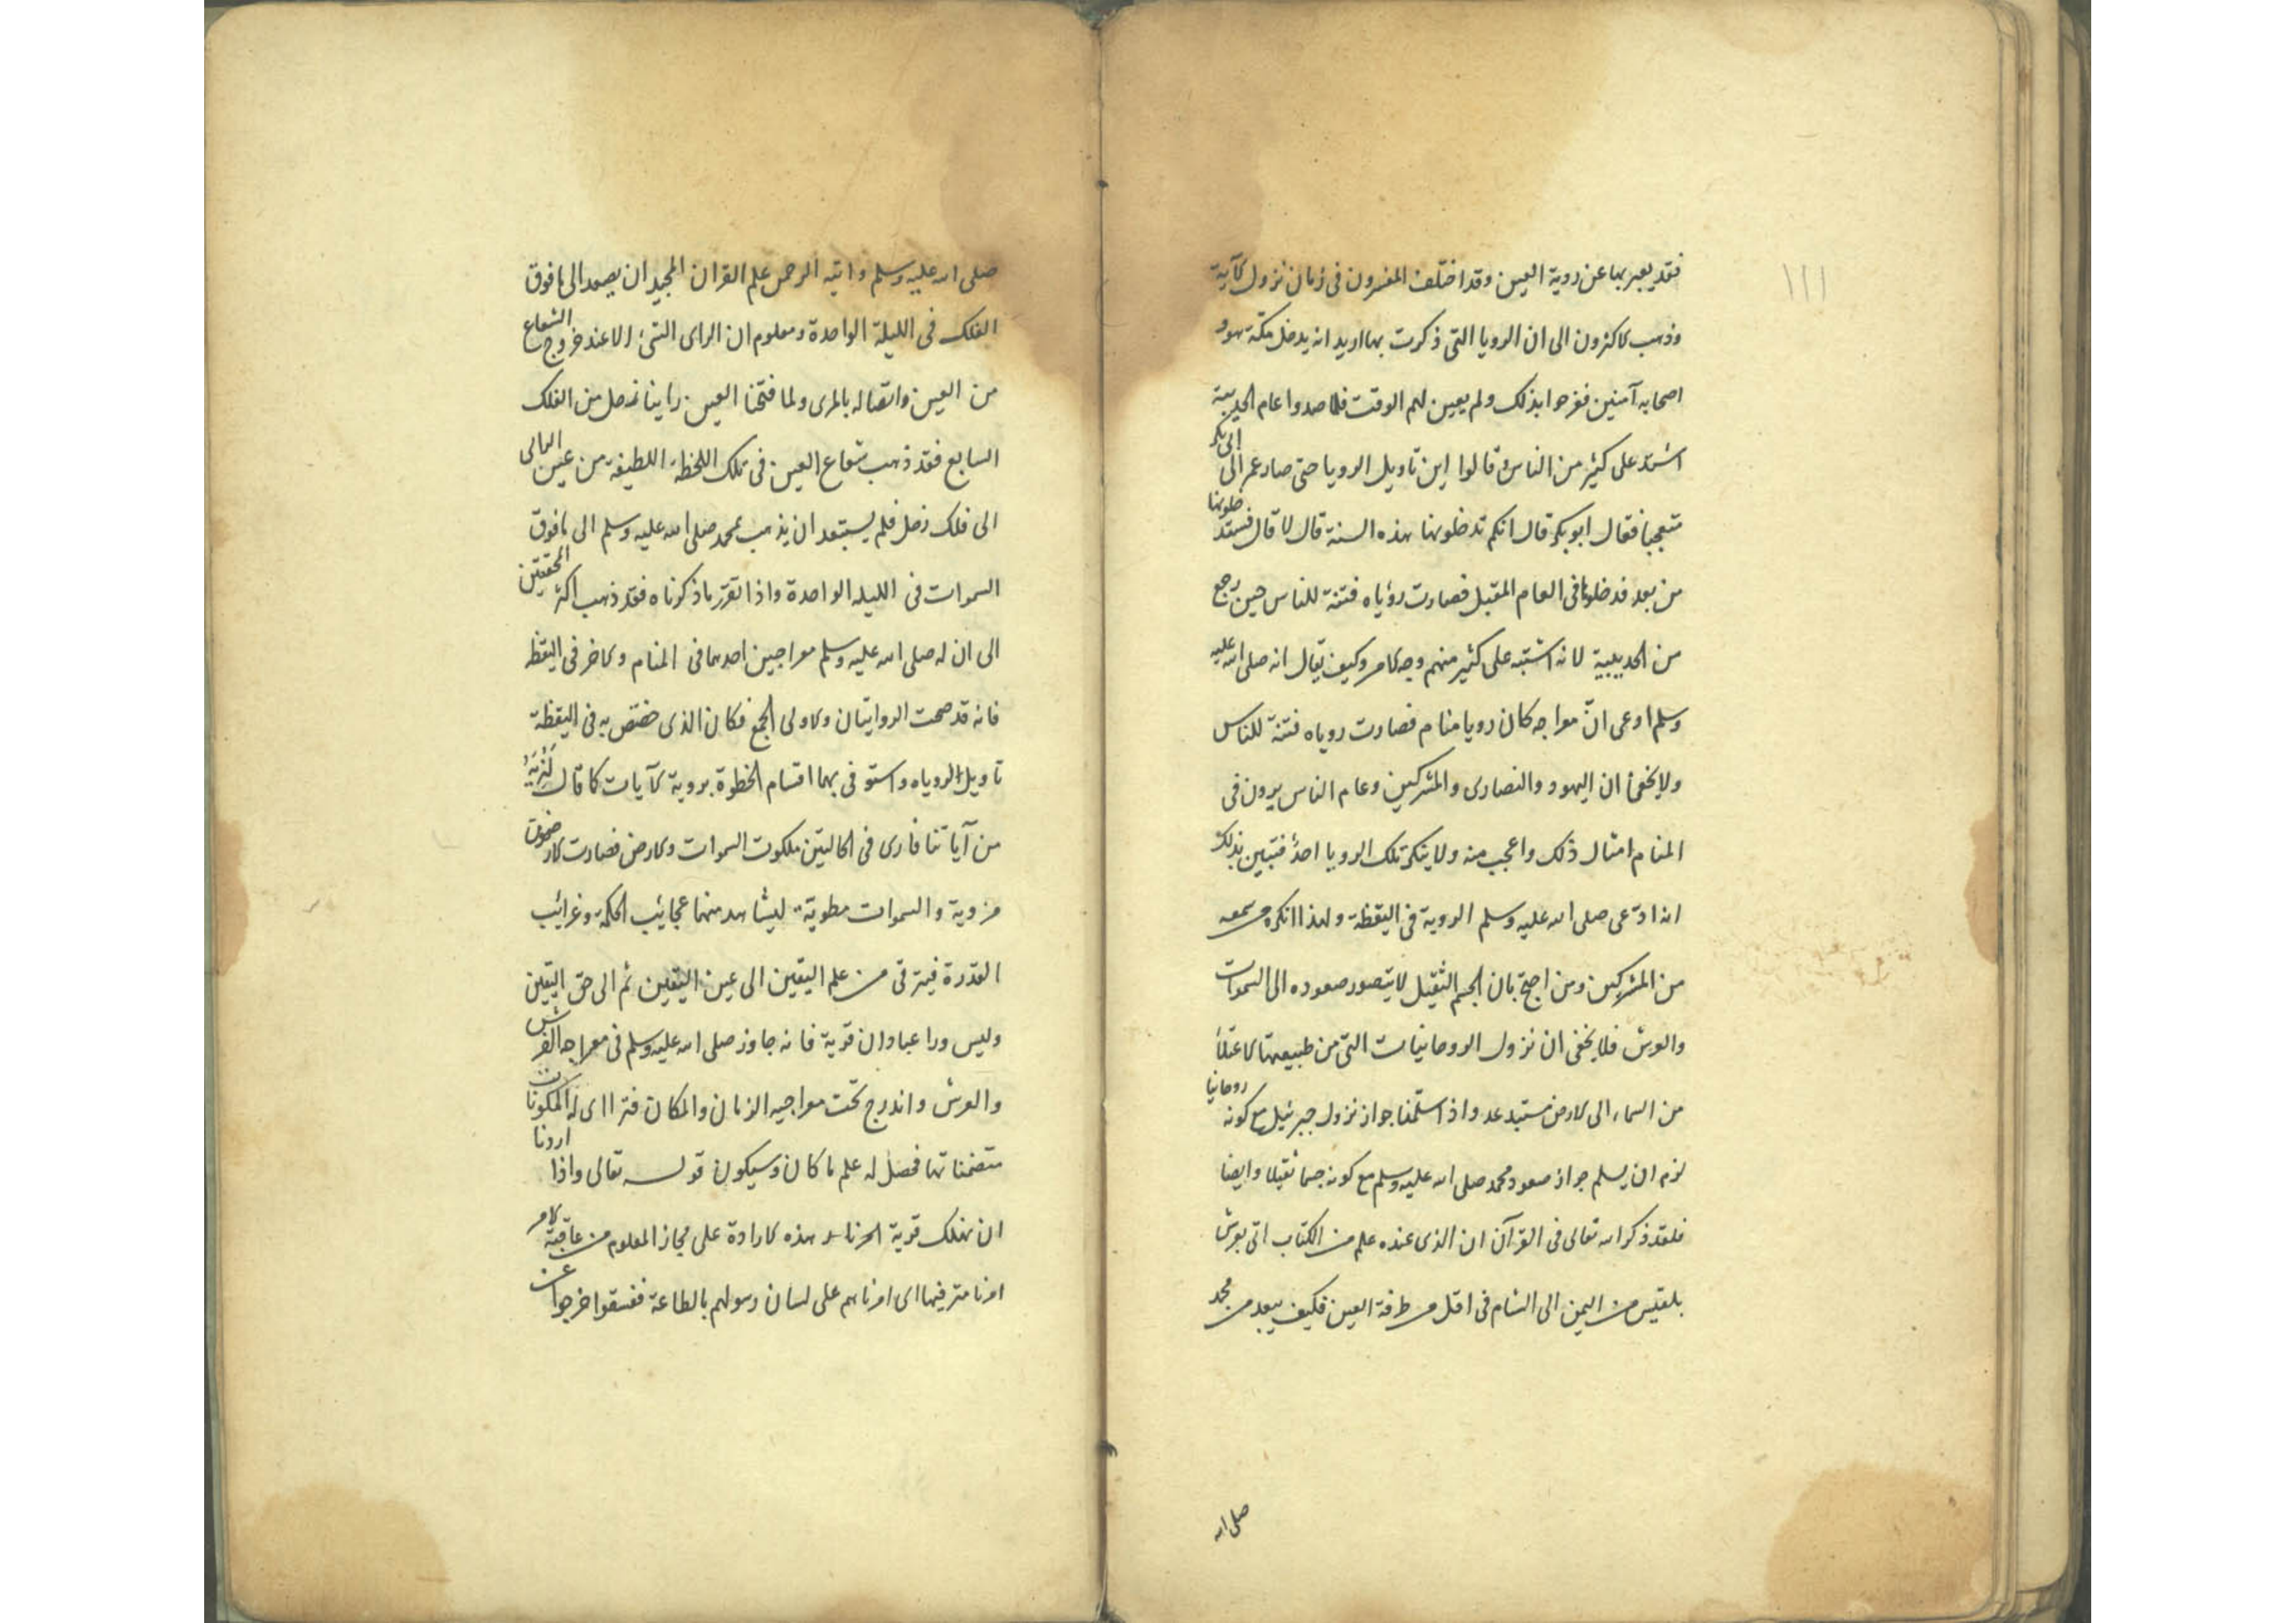 ١١١
فقد يعبر بها عن روية العين وقد اختلف المفسرون فى زمان نزول الآية
وذهب الاكثرون الى ان الرويا التى ذكرت بها اريد انه يدخل مكة هو و
اصحابه آمنين ففرحوا بذلك ولم يعين لهم الوقت فلما صدوا عام الحديبية
اشتد على كثير من الناس وقالوا اين تاويل الرويا حتى صار عمر الى ابى بكر
متعجبا فقال ابو بكر قال انكم تدخلونها هذه السنة قال لا قال فستدخلونها
من بعد فدخلوها فى العام المقبل فصارت رؤياه فتنة للناس حين رجع
من الحديبية لانه اشتبه على كثير منهم وجه الامر وكيف يقال انه صلى الله عليه
وسلم ادعى انّ معراجه كان رويا منام فصارت روياه فتنة للناس
ولا يخفى ان اليهود والنصارى والمشركين وعام الناس يرون فى
المنام امثال ذلك واعجب منه ولا ينكر تلك الرويا احد فتبين بذلك
انه ادّعى صلى الله عليه وسلم الروية فى اليقظة ولهذا انكره من سمعه
من المشركين ومن احتج بان الجسم الثقيل لا يتصور صعوده الى السموات
والعرش فلا يخفى ان نزول الروحانيات التى من طبيعتها الاعتلاء
من السماء الى الارض مستبعد واذا سلمنا جواز نزول جبرئيل مع كونه روحانيا
لزم ان يسلم جواز صعود محمد صلى الله عليه وسلم مع كونه جسما ثقيلا وايضا
فلقد ذكر الله تعالى فى القرآن ان الذى عنده علم من الكتاب اتى بعرش
بلقيس من اليمن الى الشام فى اقل من طرفة العين فكيف يبعد من محمد
صلى الله
صلى الله عليه وسلم واتيه الرحمن علم القران المجيد ان يصعد الى ما فوق
الفلك فى الليلة الواحدة ومعلوم ان الراى الشئ الا عند خروج الشعاع
من العين واتصاله بالمرى ولما فتحنا العين راينا زحل من الفلك
السابع فقد ذهب شعاع العين فى تلك اللحظة اللطيفة من عين الرائى
الى فلك زحل فلم يستبعد ان يذهب محمد صلى الله عليه وسلم الى ما فوق
السموات فى الليله الواحدة واذا تقرر ما ذكرناه فقد ذهب اكثر المحققين
الى ان له صلى الله عليه وسلم معراجين احدهما فى المنام والاخر فى اليقظه
فانه قد صحت الروايتان والاولى الجمع فكان الذى خص به فى اليقظة
تاويل الروياه واستوفى بهما اقسام الخطوة بروية الآيات كما قال لنريه
من آياتنا فارى فى الحالتين ملكوت السموات والارض فصارت الارضون
مزوية والسموات مطوية ليشاهد منهما عجائب الحكمة وغرائب
القدرة فيترقى من علم اليقين الى عين اليقين ثم الى حق اليقين
وليس ورا عبادان قرية فانه جاوز صلى الله عليه وسلم فى معراجه الفرش
والعرش واندرج تحت معراجيه الزمان والمكان فتراأى له المكونات
متضمناتها فحصل له علم ما كان وسيكون قوله تعالى واذا اردنا
ان نهلك قرية امرنا هذه الارادة على مجاز المعلوم من عاقبة الامر
امرنا مترفيها اى امرناهم على لسان رسولهم بالطاعة ففسقوا خرجوا عن